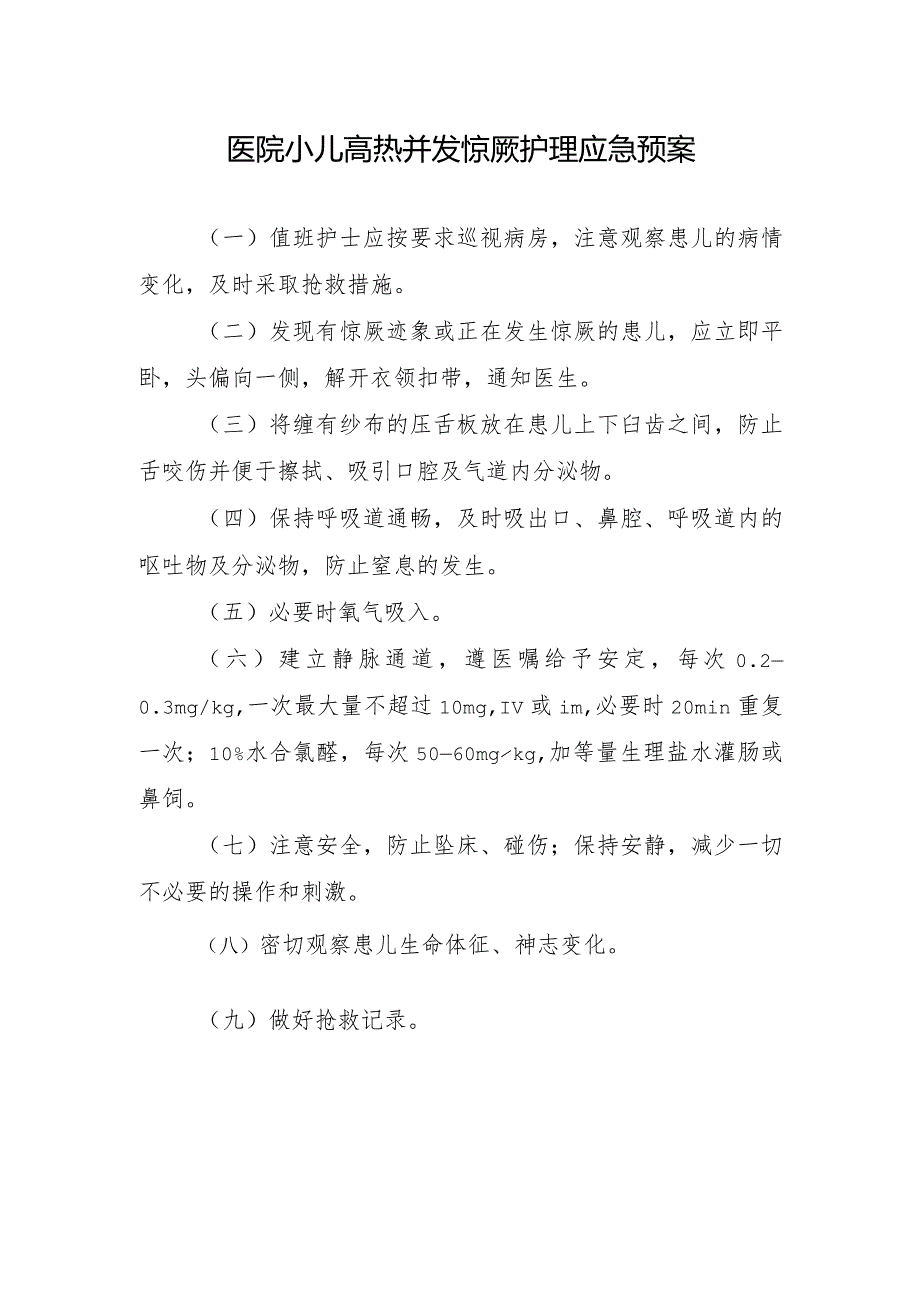 医院小儿高热并发惊厥护理应急预案
（一）值班护士应按要求巡视病房，注意观察患儿的病情
变化，及时采取抢救措施。
（二）发现有惊厥迹象或正在发生惊厥的患儿，应立即平
卧，头偏向一侧，解开衣领扣带，通知医生。
（三）将缠有纱布的压舌板放在患儿上下臼齿之间，防止
舌咬伤并便于擦拭、吸引口腔及气道内分泌物。
（四）保持呼吸道通畅，及时吸出口、鼻腔、呼吸道内的
呕吐物及分泌物，防止窒息的发生。
（五）必要时氧气吸入。
（六）建立静脉通道，遵医嘱给予安定，每次0.2—
0.3mg/kg,一次最大量不超过10mg,IV或im,必要时20min重复
一次；10%水合氯醛，每次50—60mg/kg,加等量生理盐水灌肠或
鼻饲。
（七）注意安全，防止坠床、碰伤；保持安静，减少一切
不必要的操作和刺激。
（八）密切观察患儿生命体征、神志变化。
（九）做好抢救记录。